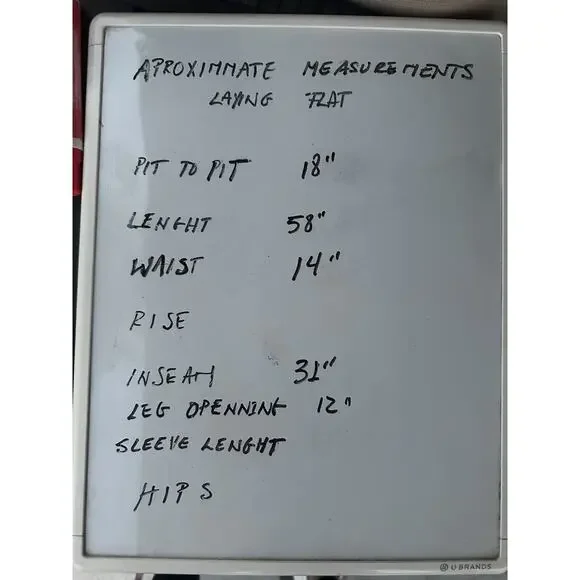 APROXIMMATE MEASUREMENTS
LAYING FLAT
PIT TO PIT 18"
LENGHT 58"
WAIST 14"
RISE
INSEAM 31"
LEG OPENNING 12"
SLEEVE LENGHT
HIPS
U BRANDS